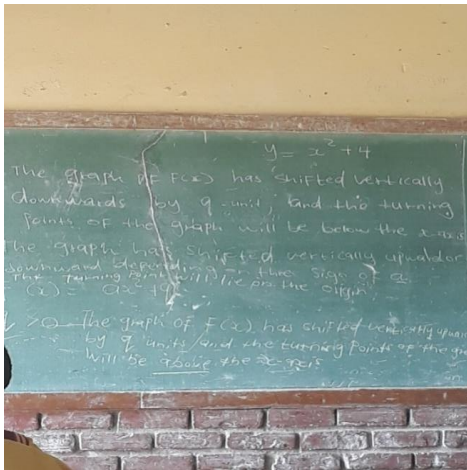 y = x² + 4
The graph of F(x) has shifted vertically
downwards by q unit and the turning
points of the graph will be below the x-axis
The graph has shifted vertically upwards or
downward depending on the sign of a
The turning point will lie on the origin
(x) = ax² + q
> 0 The graph of F(x) has shifted vertically
by q units and the turning points of the
will be above the x-axis